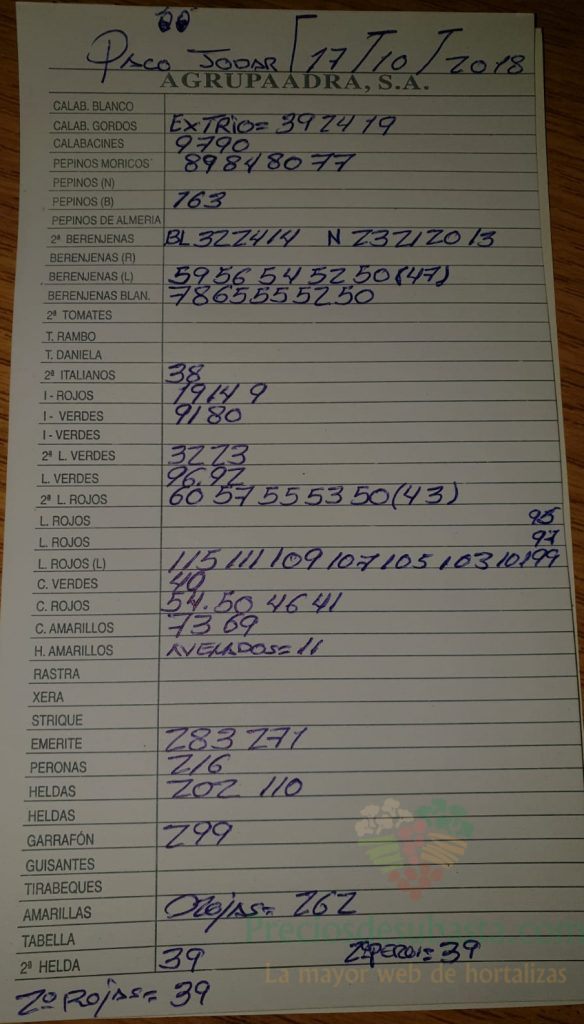 PACO JODAR / 17 / 10 / 2018
AGRUPAADRA, S.A.
CALAB. BLANCO
CALAB. GORDOS EXTRIO= 39 24 19
CALABACINES 97 90
PEPINOS MORICOS 89 84 80 77
PEPINOS (N)
PEPINOS (B) 163
PEPINOS DE ALMERIA
2ª BERENJENAS BL 32 24 14 N 23 21 20 13
BERENJENAS (R)
BERENJENAS (L) 59 56 54 52 50 (47)
BERENJENAS BLAN. 78 65 55 52 50
2ª TOMATES
T. RAMBO
T. DANIELA
2ª ITALIANOS 38
I - ROJOS 19 14 9
I - VERDES 91 80
I - VERDES
2ª L. VERDES 32 23
L. VERDES 96. 92
2ª L. ROJOS 60 57 55 53 50 (43)
L. ROJOS 95
L. ROJOS 97
L. ROJOS (L) 115 111 109 107 105 103 101 99
C. VERDES 40
C. ROJOS 54. 50 46 41
C. AMARILLOS 73 69
H. AMARILLOS = 11
RASTRA
XERA
STRIQUE
EMERITE 283 271
PERONAS 216
HELDAS 202 110
HELDAS
GARRAFÓN 299
GUISANTES
TIRABEQUES
AMARILLAS ROJAS= 262
TABELLA
Preciosdesubasta.com
2ª HELDA 39 2ª PERO1= 39
La mayor web de hortalizas
2ª ROJAS= 39